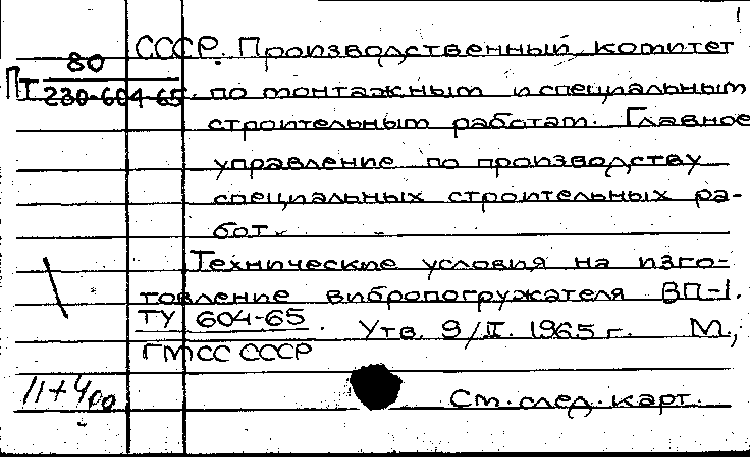 1
80
СССР. Производственный комитет
Пт 230-604-65. по монтажным и специальным
строительным работам. Главное
управление по производству
специальных строительных ра-
бот.
Технические условия на изго-
товление вибропогружателя ВП-1.
ТУ 604-65. Утв. 9/II. 1965 г. М.,
ГМСС СССР
11+400
См. след. карт.